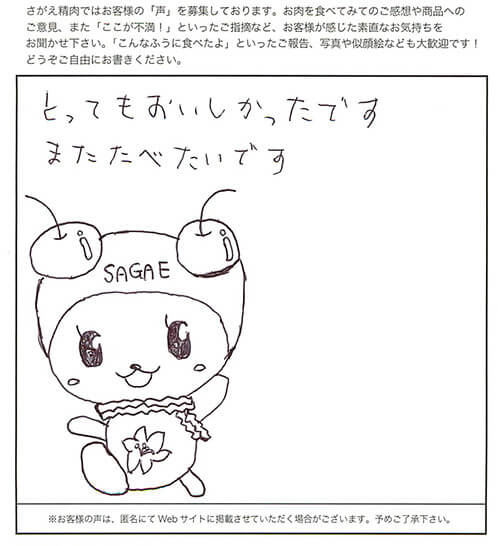 さがえ精肉ではお客様の「声」を募集しております。お肉を食べてみてのご感想や商品への
ご意見、また「ここが不満！」といったご指摘など、お客様が感じた素直なお気持ちを
お聞かせ下さい。「こんなふうに食べたよ」といったご報告、写真や似顔絵なども大歓迎です！
どうぞご自由にお書きください。
とってもおいしかったです
またたべたいです
SAGAE
※お客様の声は、匿名にて Web サイトに掲載させていただく場合がございます。予めご了承下さい。